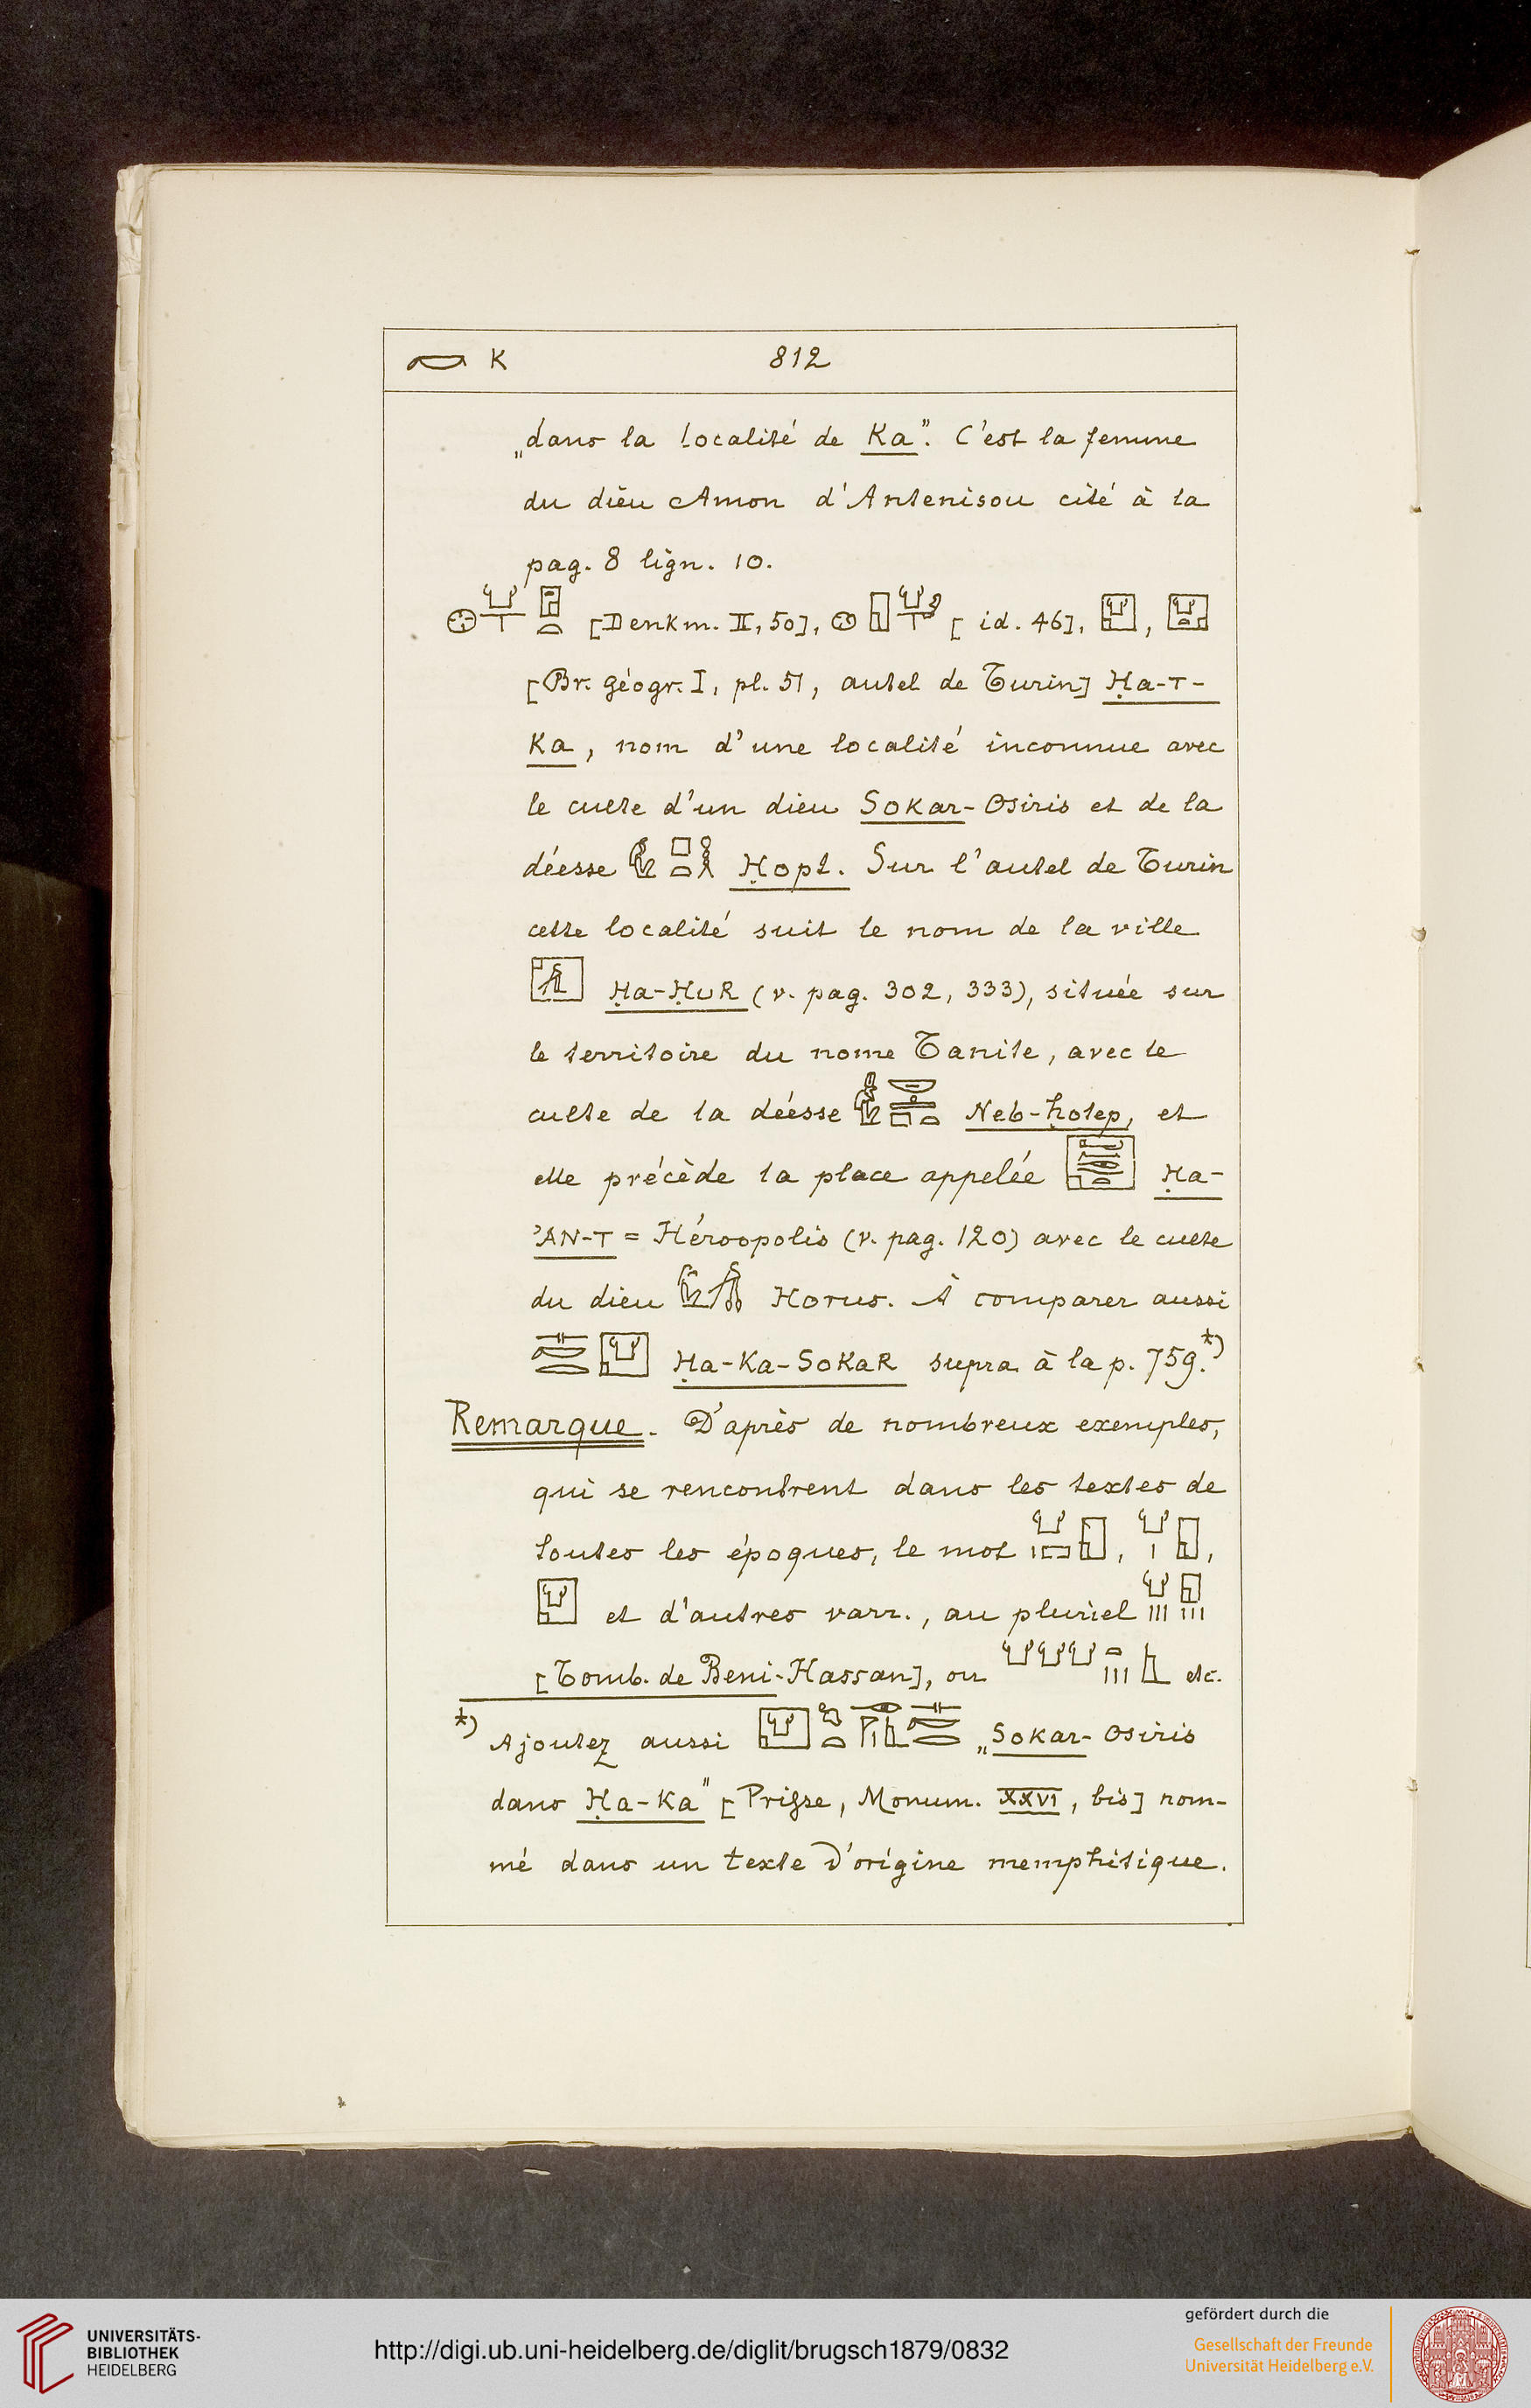 K 812
„dans la localité de Ka”. C'est la femme
du dieu Amon d'Antenisou cité à la
pag. 8 lign. 10.
[Denkm. II, 50], [id. 46], ,
[Br. géogr. I, pl. 51, autel de Turin] Ḥa-T-
Ka, nom d'une localité inconnue avec
le culte d'un dieu Sokar-Osiris et de la
déesse Ḥopt. Sur l'autel de Turin
cette localité suit le nom de la ville
Ḥa-ḤUR (v. pag. 302, 333), située sur
le territoire du nome Tanite, avec le
culte de la déesse Neb-ḥotep, et
elle précède la place appelée Ḥa-
'AN-T = Héroopolis (v. pag. 120) avec le culte
du dieu Horus. À comparer aussi
Ḥa-Ka-SoKaR supra à la p. 759.*)
Remarque. D'après de nombreux exemples,
qui se rencontrent dans les textes de
toutes les époques, le mot , ,
et d'autres varr., au pluriel
[Tomb. de Beni-Hassan], ou etc.
*) Ajoutez aussi „Sokar-Osiris
dans Ḥa-Ka” [Prisse, Monum. XXVI, bis] nom-
mé dans un texte d'origine memphitique.
UNIVERSITÄTS-
BIBLIOTHEK
HEIDELBERG
http://digi.ub.uni-heidelberg.de/diglit/brugsch1879/0832
gefördert durch die
Gesellschaft der Freunde
Universität Heidelberg e.V.